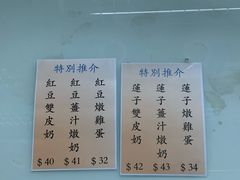 特別推介
紅豆雙皮奶
紅豆薑汁燉奶
紅豆燉雞蛋
$40 $41 $32
特別推介
蓮子雙皮奶
蓮子薑汁燉奶
蓮子燉雞蛋
$42 $43 $34